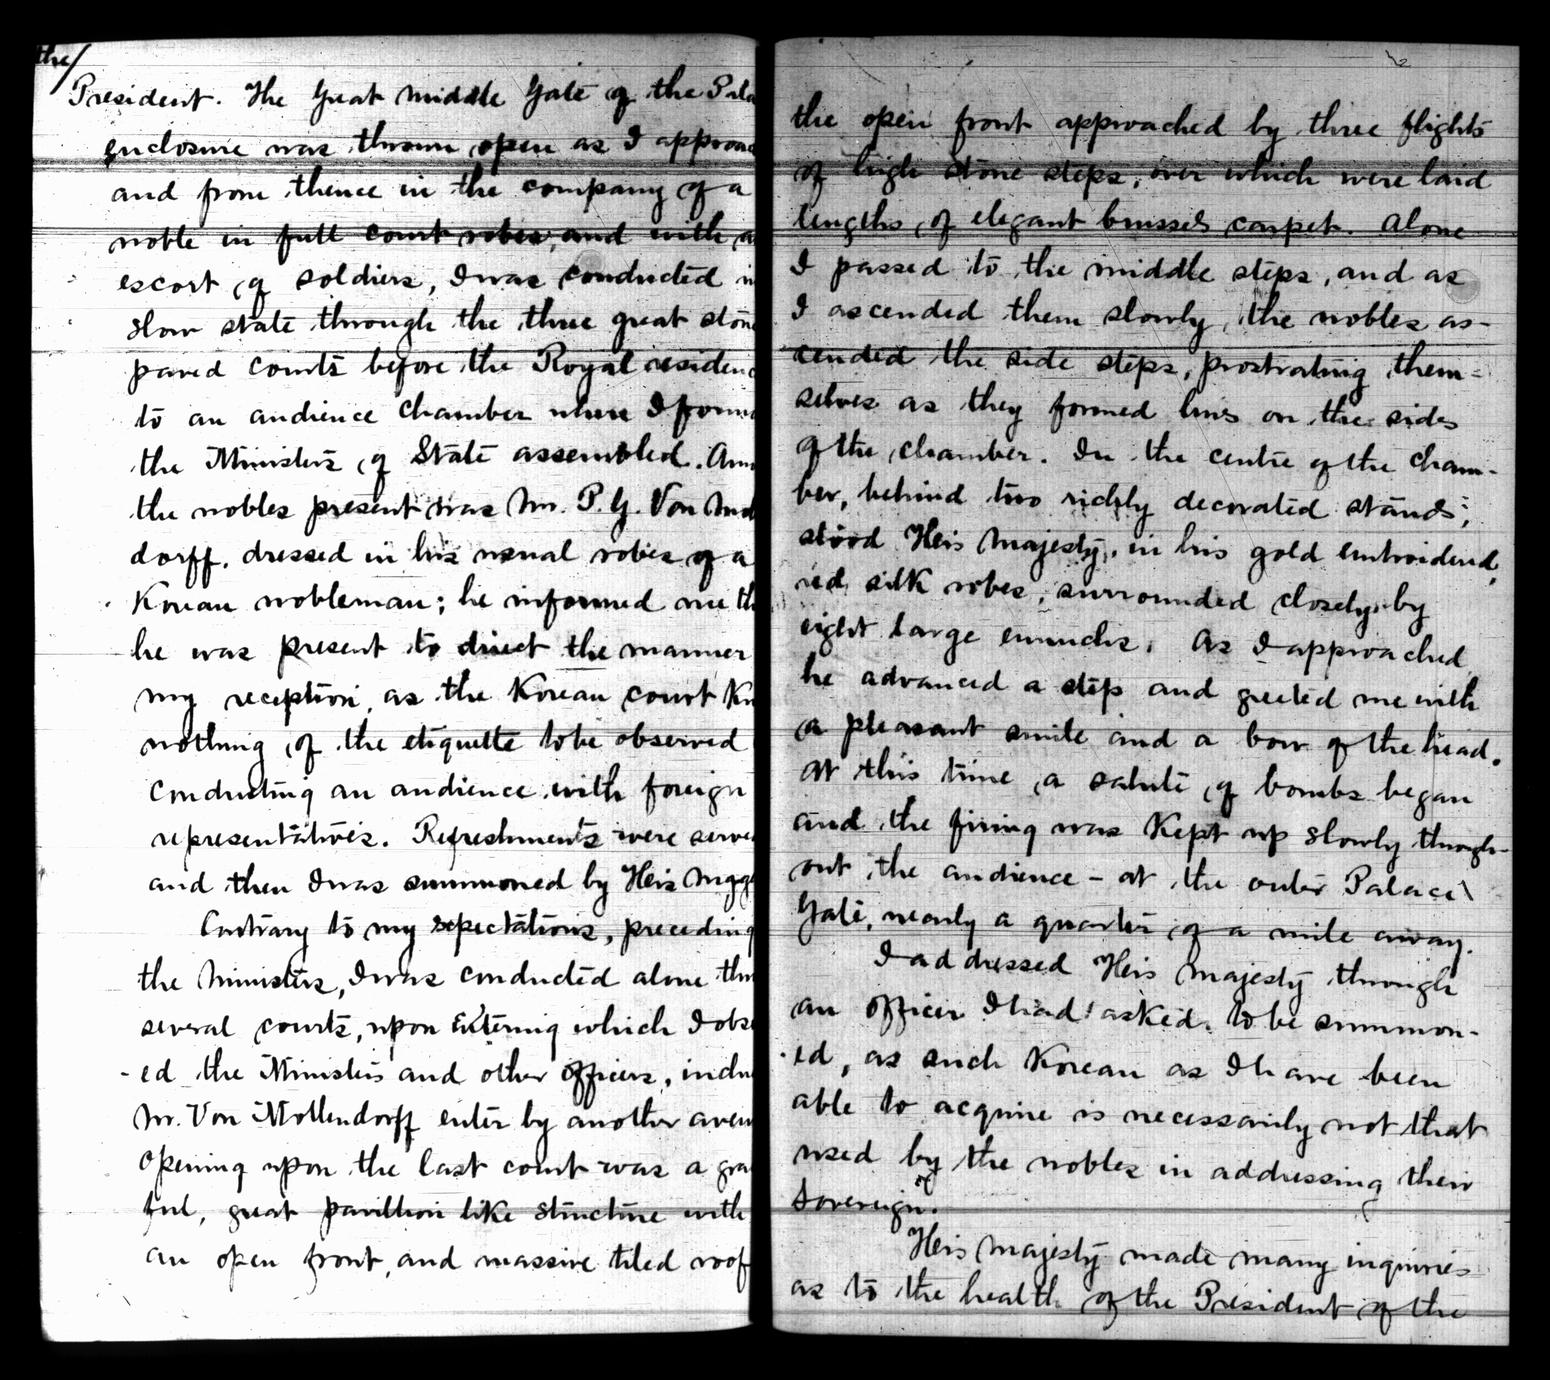 the/
President. The Great Middle Gate of the Pala
enclosure was thrown open as I approac
and from thence in the company of a
noble in full court robes, and with a
escort of soldiers, I was conducted in
slow state through the three great stone
paved courts before the Royal residenc
to an audience chamber where I foun
the Ministers of State assembled. Am
the nobles present was Mr. P. G. Von Mol
dorff, dressed in his usual robes of a
Korean nobleman; he informed me th
he was present to direct the manner
my reception, as the Korean court kn
nothing of the etiquette to be observed
conducting an audience with foreign
representatives. Refreshments were serve
and then I was summoned by His Maje
Contrary to my expectations, preceding
the Ministers, I was conducted alone thr
several courts, upon entering which I obs
-ed the Ministers and other officers, inclu
Mr. Von Mollendorff enter by another aven
opening upon the last court was a gra
ful, great pavillion like structure with
an open front, and massive tiled roof
the open front approached by three flights
of high stone steps, over which were laid
lengths of elegant brussels carpet. Alone
I passed to the middle steps, and as
I ascended them slowly, the nobles as-
cended the side steps, prostrating them-
selves as they formed lines on the sides
of the chamber. In the centre of the cham-
ber, behind two richly decorated stands,
stood His Majesty, in his gold embroidered,
red silk robes, surrounded closely by
eight large eunuchs. As I approached
he advanced a step and greeted me with
a pleasant smile and a bow of the head.
At this time a salute of bombs began
and the firing was kept up slowly through-
out the audience - at the outer Palace
Gate, nearly a quarter of a mile away.
I addressed His Majesty through
an officer I had asked to be summon-
ed, as such Korean as I have been
able to acquire is necessarily not that
used by the nobles in addressing their
Sovereign.
His Majesty made many inquiries
as to the health of the President of the